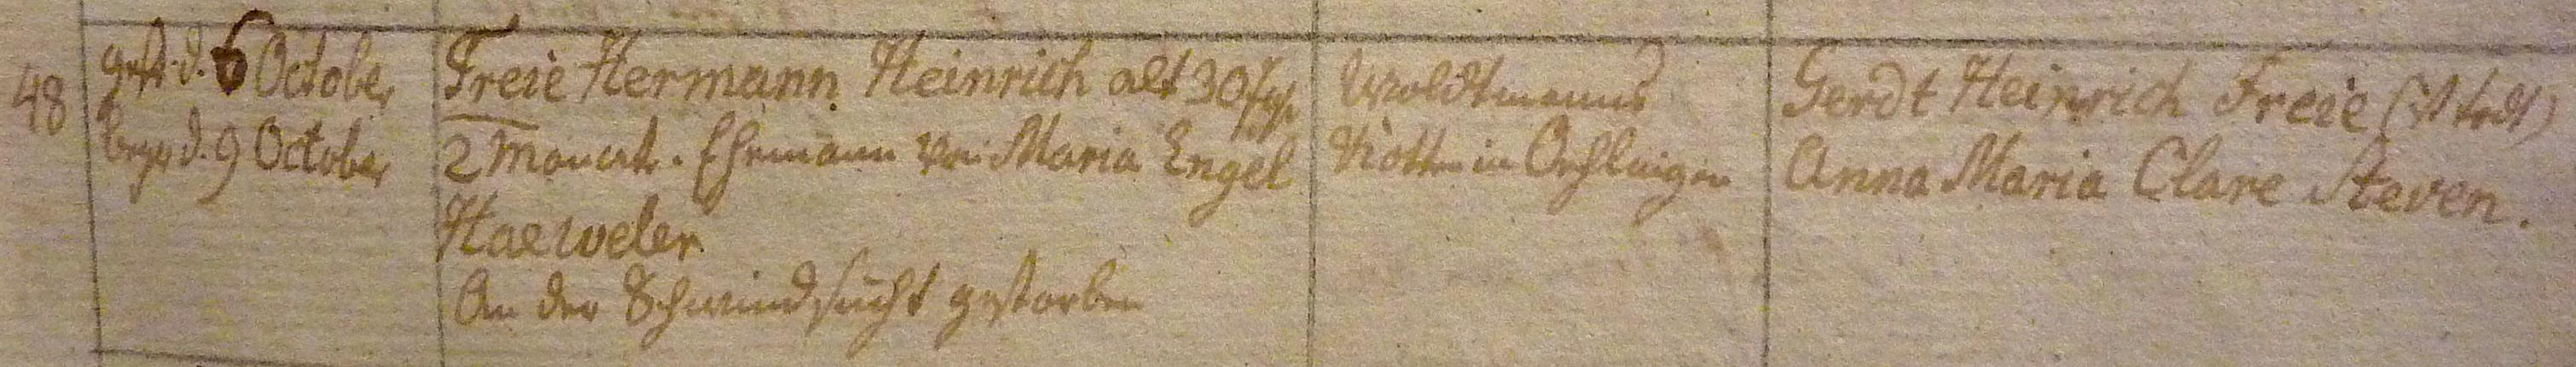 48
gest. d. 6 October
begr. d. 9 October
Freie Hermann Heinrich alt 30 Jahr
2 Monat. Ehemann von Maria Engel
Haeweler
An der Schwindsucht gestorben
Woldtmanns
Kotten in Oehlingen
Gerdt Heinrich Freie
Anna Maria Clare Steven.